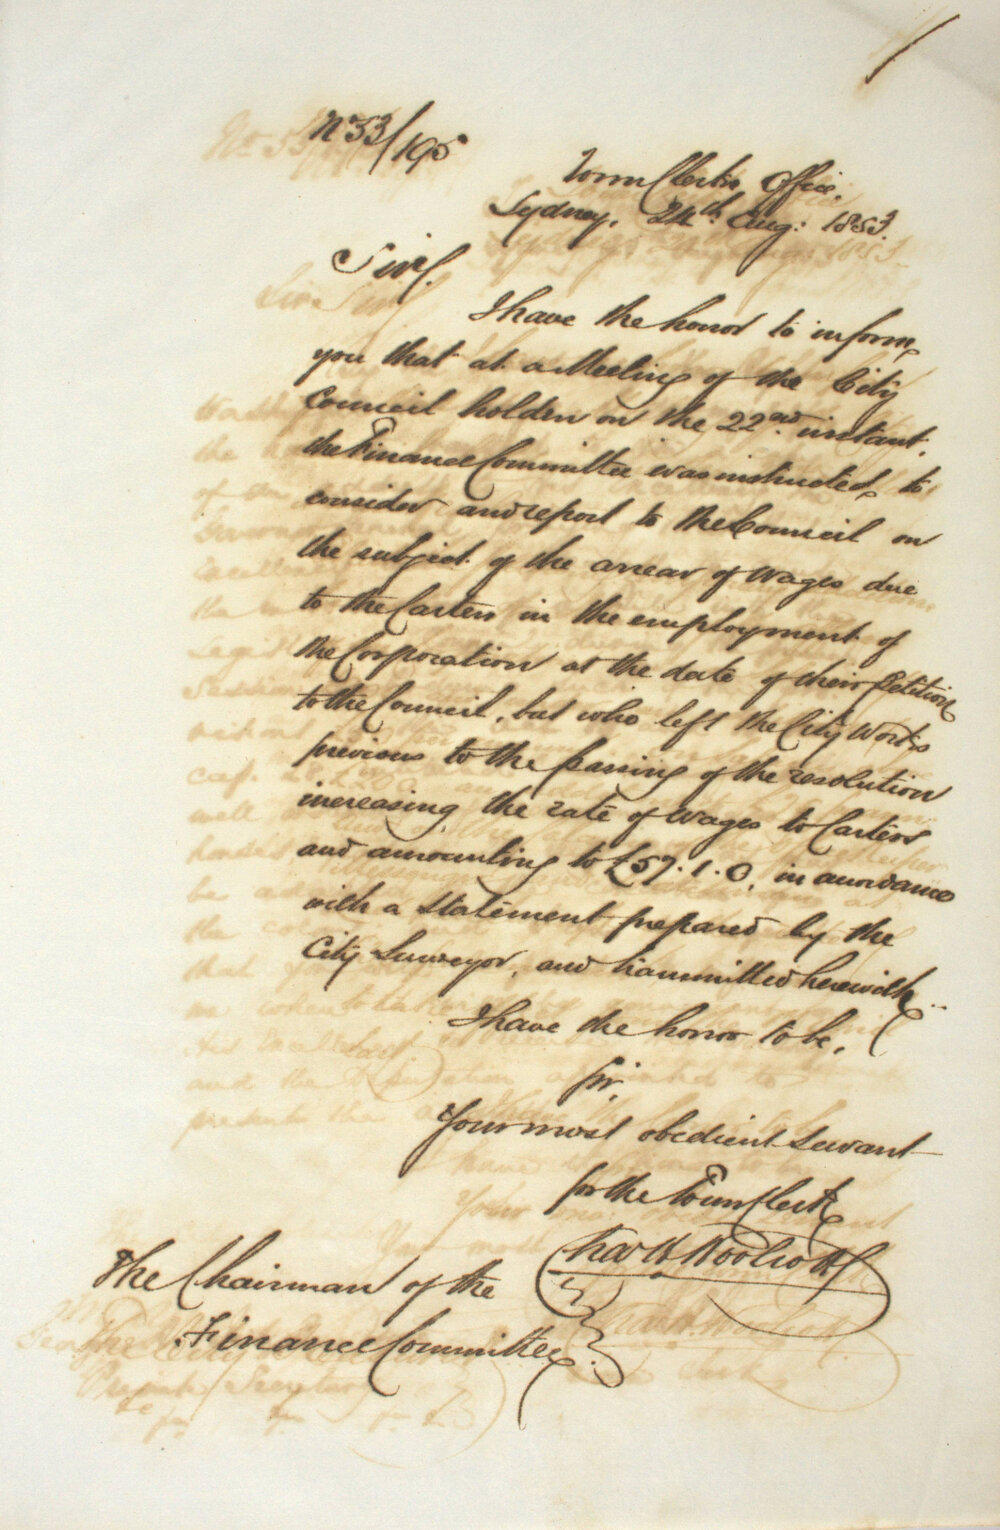 No 53/195
Town Clerk's Office,
Sydney, 24th Aug: 1853.
Sir,
I have the honor to inform
you that at a Meeting of the City
Council holden on the 22nd instant,
the Finance Committee was instructed to
consider and report to the Council on
the subject of the arrear of Wages due
to the Carters in the employment of
the Corporation at the date of their Petition
to the Council, but who left the City Works
previous to the passing of the resolution
increasing the rate of Wages to Carters
and amounting to £57.1.0, in accordance
with a statement prepared by the
City Surveyor, and transmitted herewith.
I have the honor to be,
Sir,
Your most obedient Servant
for the Town Clerk
Chas H Woolcott
The Chairman of the
Finance Committee.